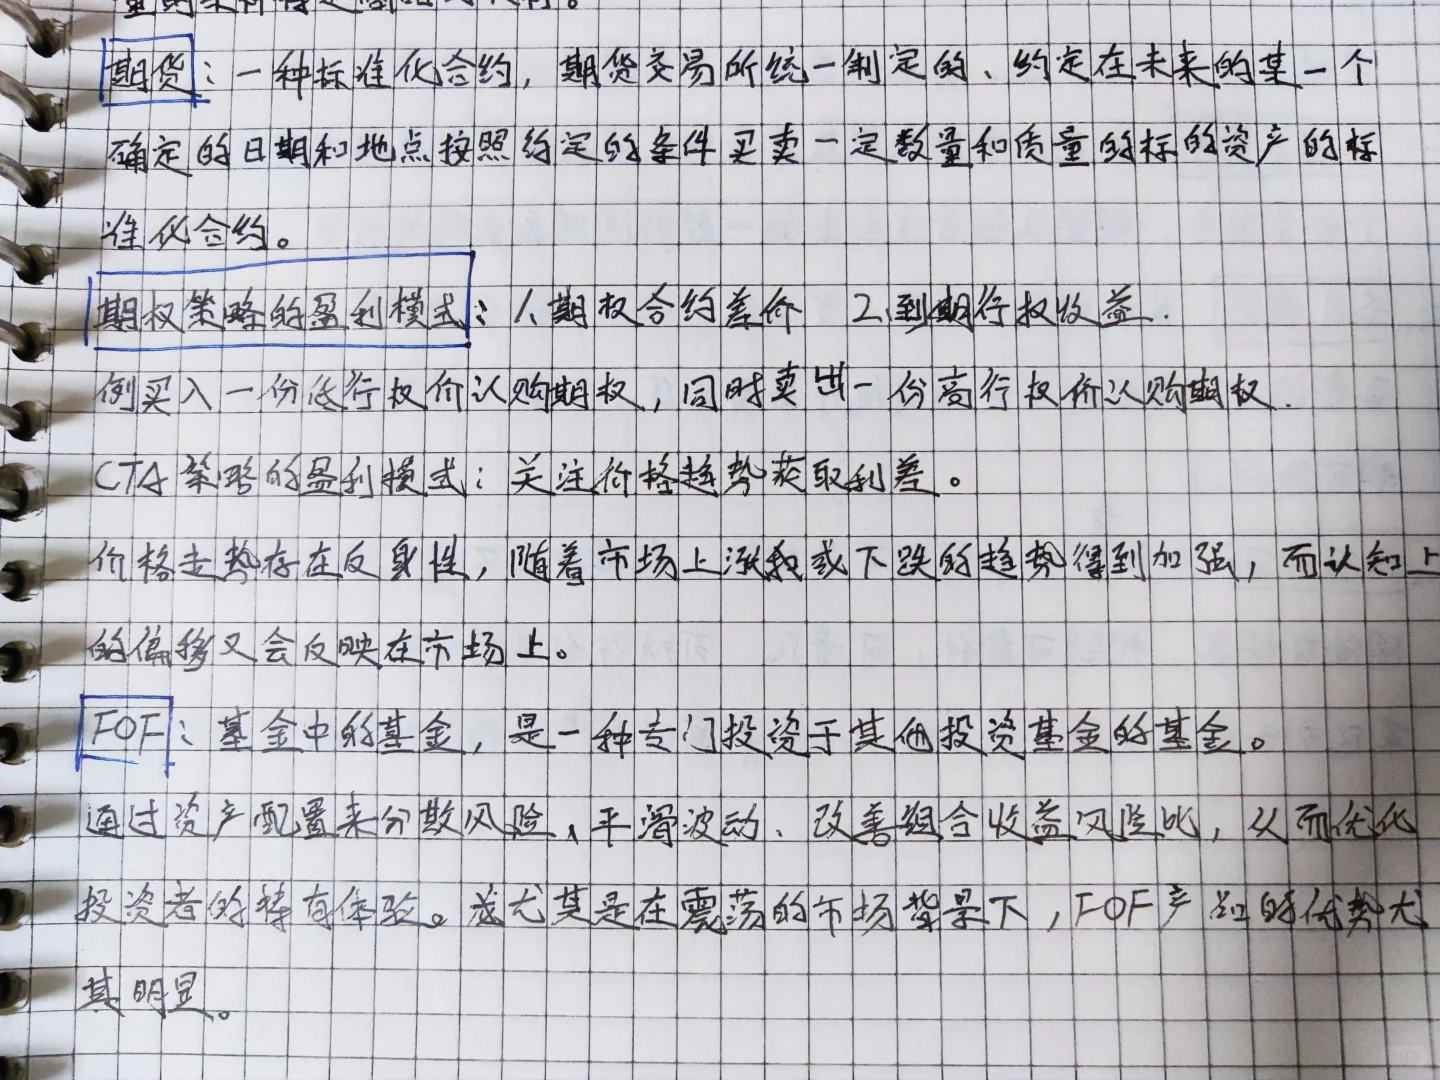 期货：一种标准化合约，期货交易所统一制定的、约定在未来的某一个
确定的日期和地点按照约定的条件买卖一定数量和质量的标的资产的标
准化合约。
期权策略的盈利模式：1、期权合约差价 2、到期行权收益.
例买入一份低行权价认购期权，同时卖出一份高行权价认购期权.
CTA策略的盈利模式：关注价格趋势获取利差。
价格走势存在反身性，随着市场上涨和或下跌的趋势得到加强，而认知上
的偏移又会反映在市场上。
FOF：基金中的基金，是一种专门投资于其他投资基金的基金。
通过资产配置来分散风险、平滑波动、改善组合收益风险比，从而优化
投资者的持有体验。尤其是在震荡的市场背景下，FOF产品的优势尤
其明显。